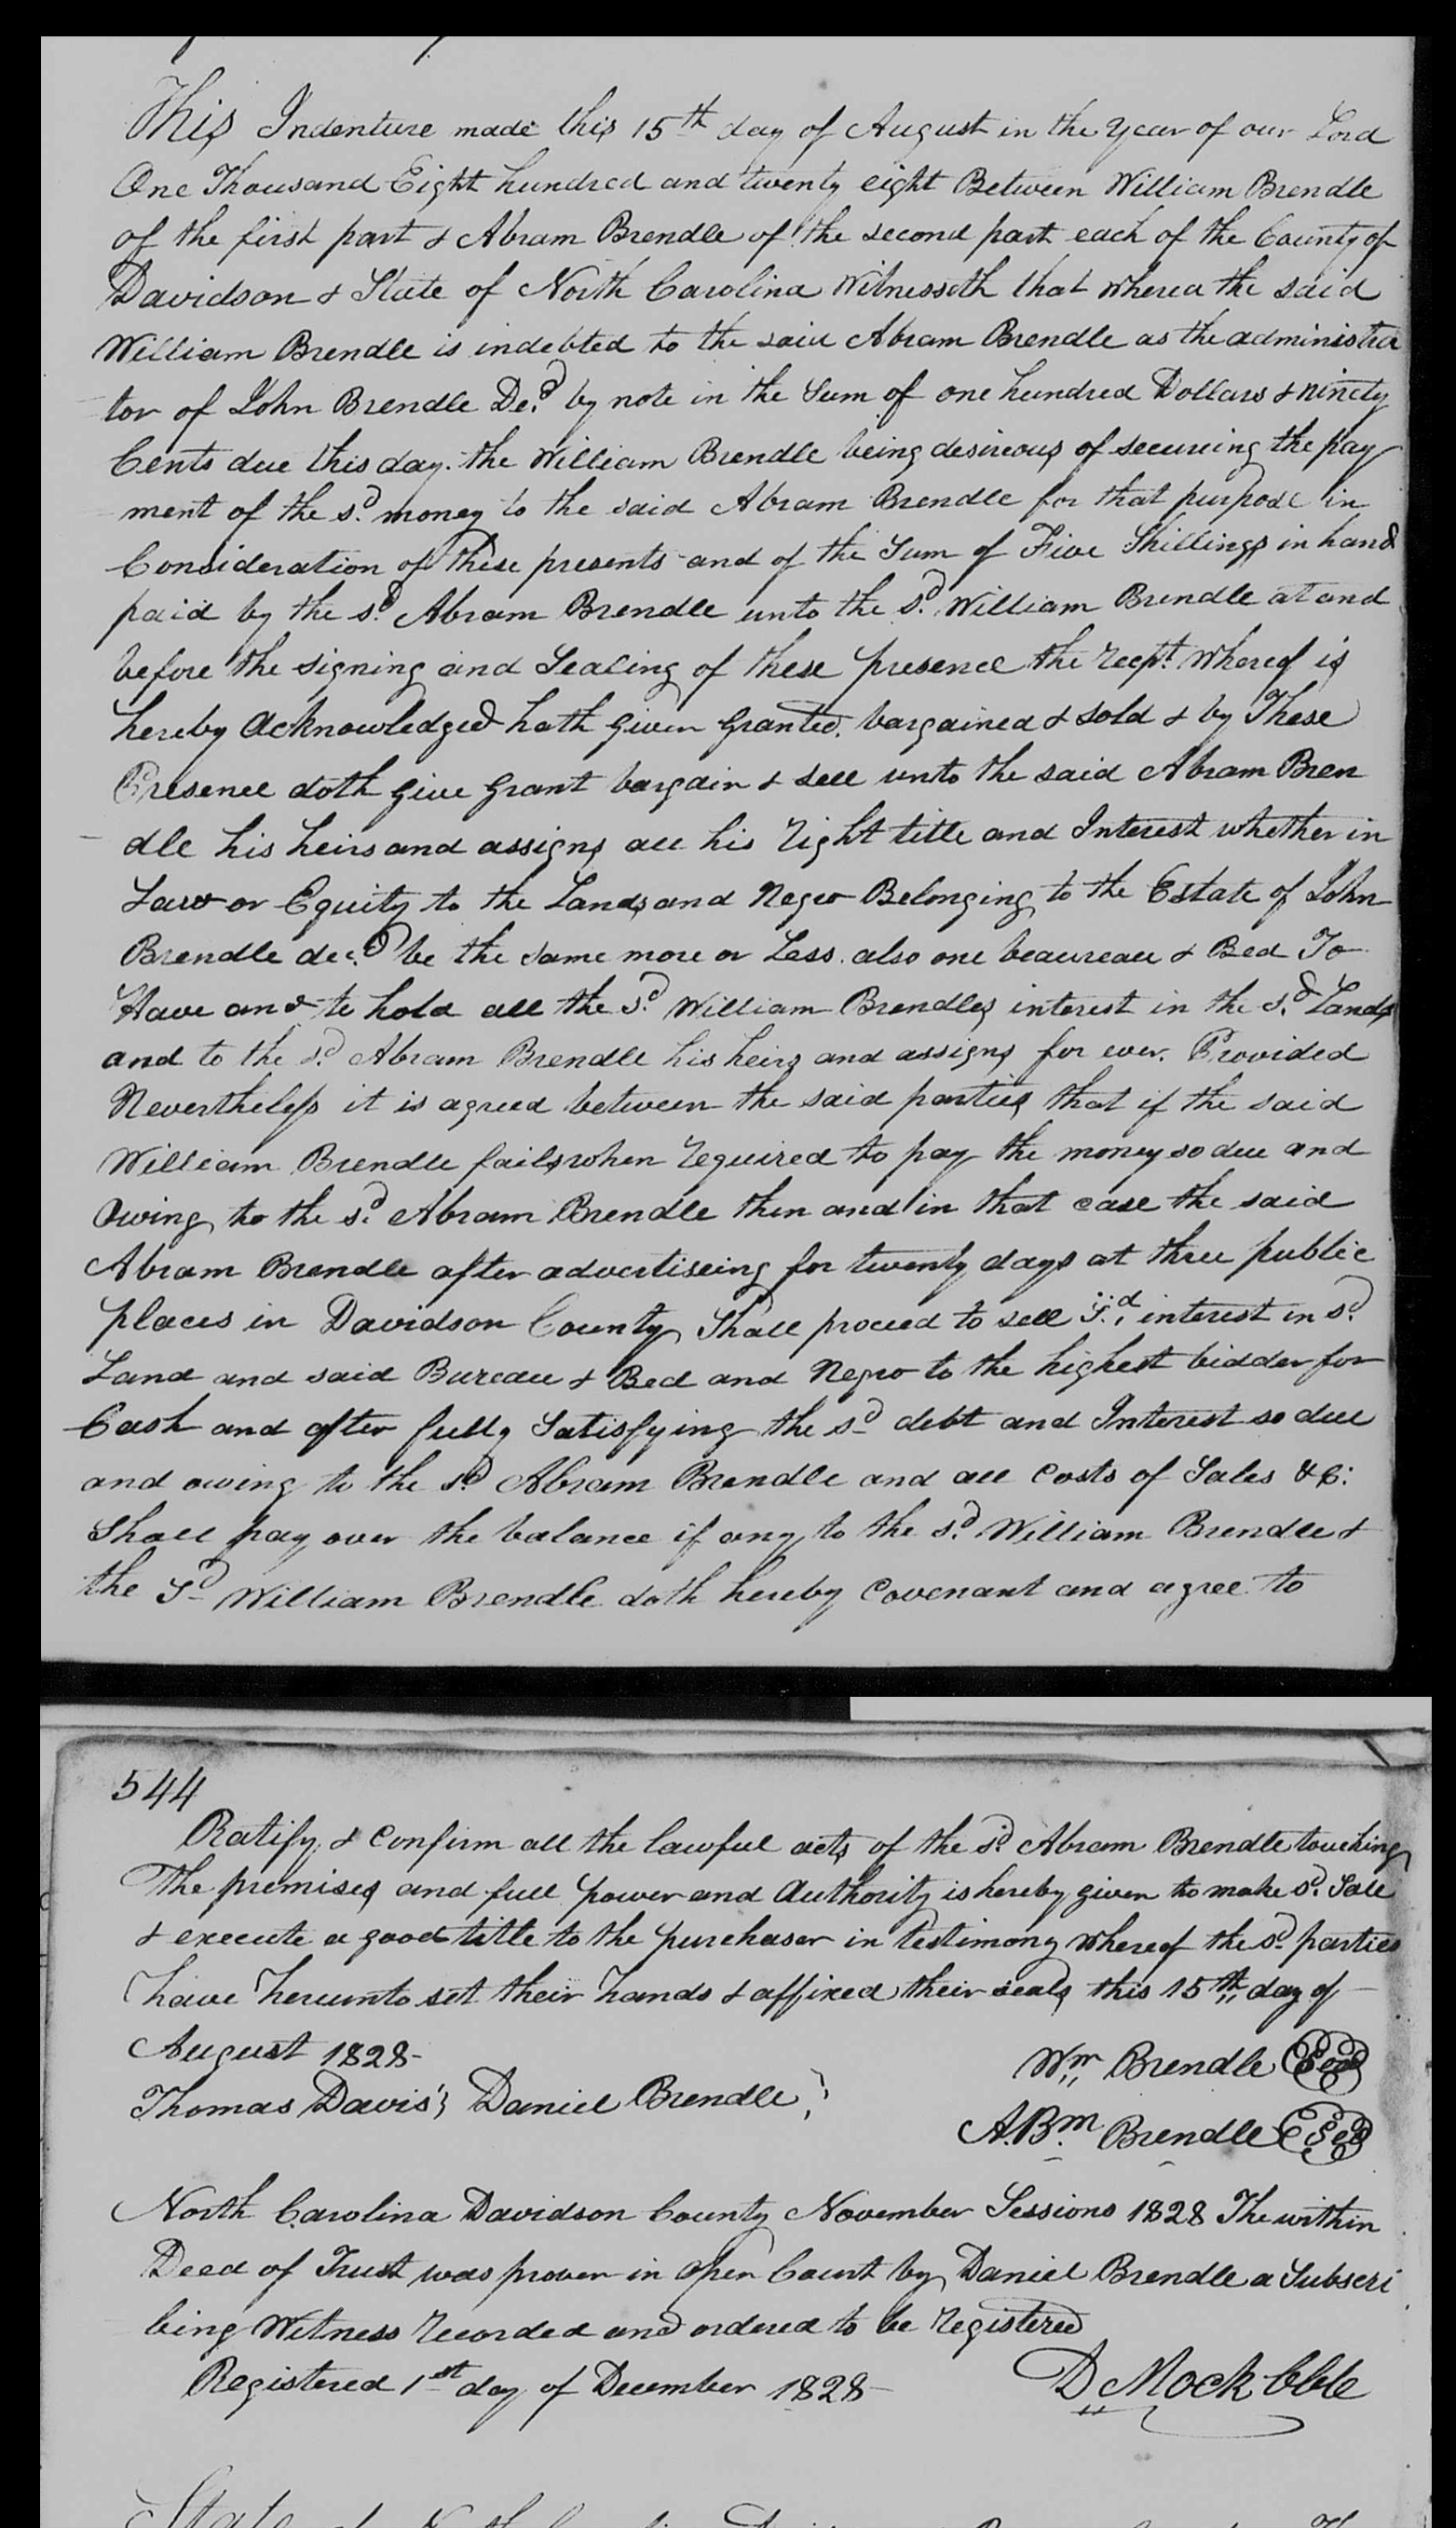 This Indenture made this 15th day of August in the Year of our Lord
One Thousand Eight hundred and twenty eight Between William Brendle
of the first part & Abram Brendle of the second part each of the County of
Davidson & State of North Carolina Witnesseth that wherea the said
William Brendle is indebted to the said Abram Brendle as the administra
tor of John Brendle Decd by note in the Sum of one hundred Dollars & ninety
Cents due this day. the William Brendle being desireous of secureing the pay
ment of the sd. money to the said Abram Brendle for that purpose in
Consideration of these presents and of the Sum of Five Shillings in hand
paid by the sd. Abram Brendle unto the sd. William Brendle at and
before the signing and Sealing of these presence the recpt. whereof is
hereby Acknowledged hath given granted, bargained & sold & by These
Presence doth give grant bargain & sell unto the said Abram Bren
dle his heirs and assigns all his right title and Interest whether in
Law or Equity to the Lands and Negro Belonging to the Estate of John
Brendle decd. be the same more or Less. also one beaureau & Bed To
Have and to hold all the sd. William Brendles interest in the sd. Lands
and to the sd. Abram Brendle his heirs and assigns for ever. Provided
Nevertheless it is agreed between the said parties that if the said
William Brendle fails when required to pay the money so due and
Owing to the sd. Abram Brendle then and in that case the said
Abram Brendle after advertiseing for twenty days at three public
places in Davidson County Shall proceed to sell sd. interest in sd.
Land and said Bureau & Bed and Negro to the highest bidder for
Cash and after fully Satisfying the sd debt and Interest so due
and owing to the sd. Abram Brendle and all Costs of Sales &c:
Shall pay over the balance if any to the sd. William Brendle &
the sd William Brendle doth hereby Covenant and agree to
544
Ratify & confirm all the lawful acts of the sd. Abram Brendle touching
The premises and full power and Authority is hereby given to make sd. Sale
& execute a good title to the purchaser in testimony whereof the sd. parties
have hereunto set their hands & affixed their seals this 15th day of
August 1828
Wm Brendle Seal
Thomas Davis; Daniel Brendle;
A.Bm. Brendle Seal
North Carolina Davidson County November Sessions 1828 The within
Deed of Trust was proven in open Court by Daniel Brendle a Subscri
bing Witness recorded and ordered to be registered
Registered 1st day of December 1828
D Mock CClk